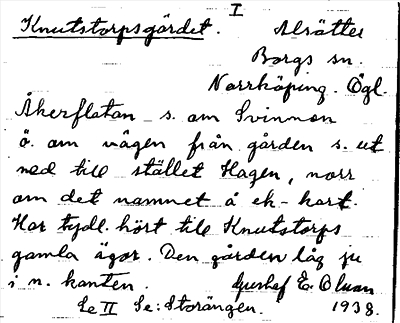 I
Knutstorpsgärdet. Alsätter
Borgs sn.
Norrköping. Ögl.
Åkerflatan s. om Svinnon
ö. om vägen från gården s. ut
ned till stället Hagen, norr
om det namnet å ek-kart.
Har tydl. hört till Knutstorps
gamla ägor. Den gården låg ju
i n. kanten. E. Olson
Se II Se: Storängen. 1938.